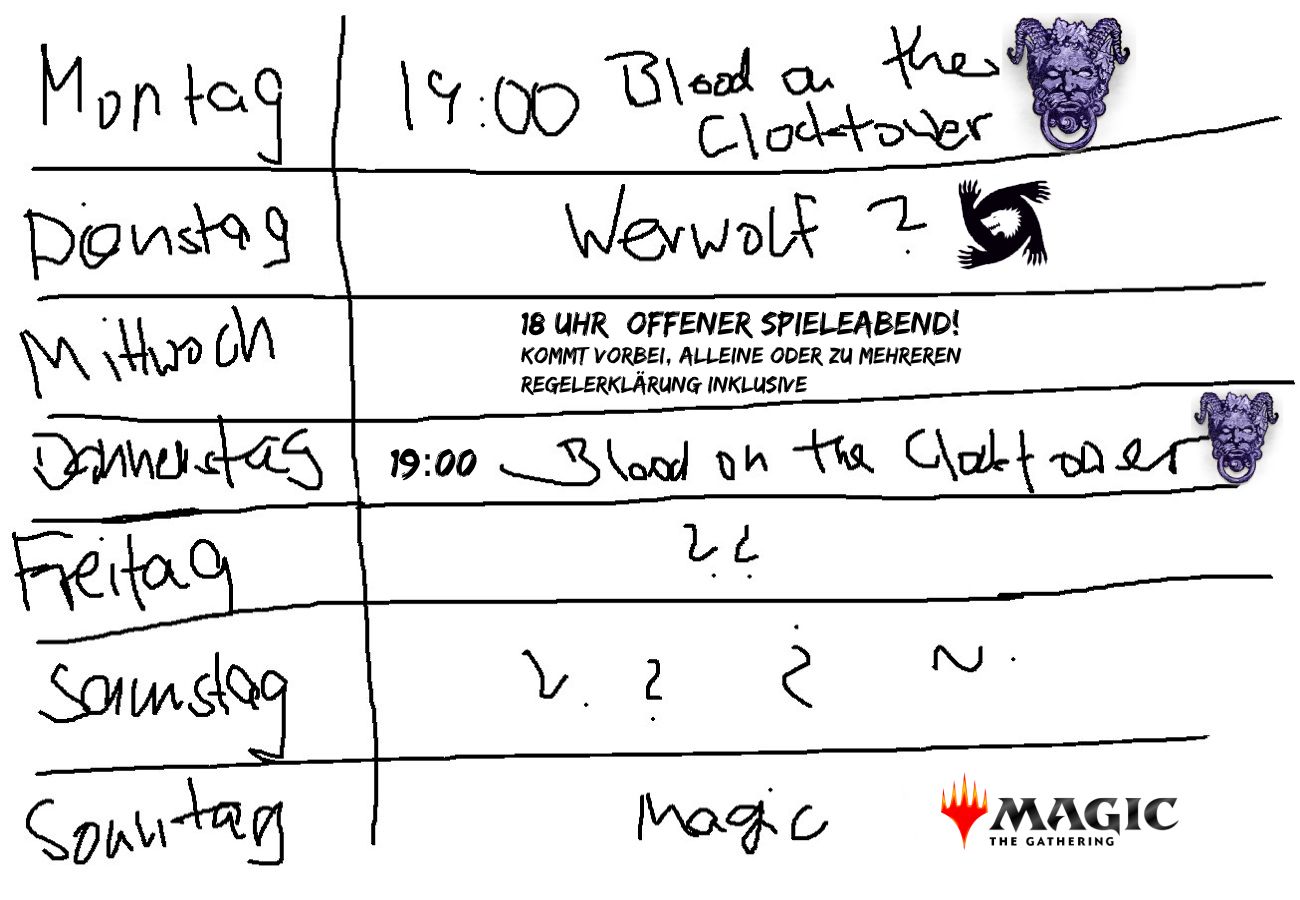 Montag 19:00 Blood on the
Clocktower
Dienstag Werwolf ?
Mittwoch 18 UHR OFFENER SPIELEABEND!
KOMMT VORBEI, ALLEINE ODER ZU MEHREREN
REGELERKLÄRUNG INKLUSIVE
Donnerstag 19:00 Blood on the Clocktower
Freitag ??
Samstag ? ? ? ?
Sonntag Magic MAGIC
THE GATHERING